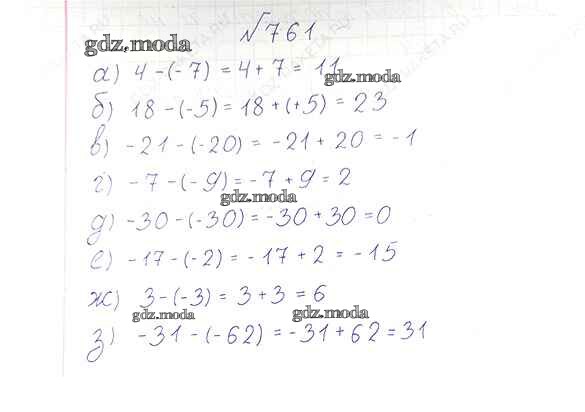 №761
gdz.moda
а) 4 - (- 7) = 4 + 7 = 11
gdz.moda
б) 18 - (-5) = 18 + (+5) = 23
в) - 21 - (-20) = - 21 + 20 = - 1
г) - 7 - (- 9) = - 7 + 9 = 2
gdz.moda
д) -30 - (-30) = -30 + 30 = 0
е) -17 - (-2) = - 17 + 2 = - 15
ж) 3 - (-3) = 3 + 3 = 6
gdz.moda
gdz.moda
з) -31 - (-62) = -31 + 62 = 31